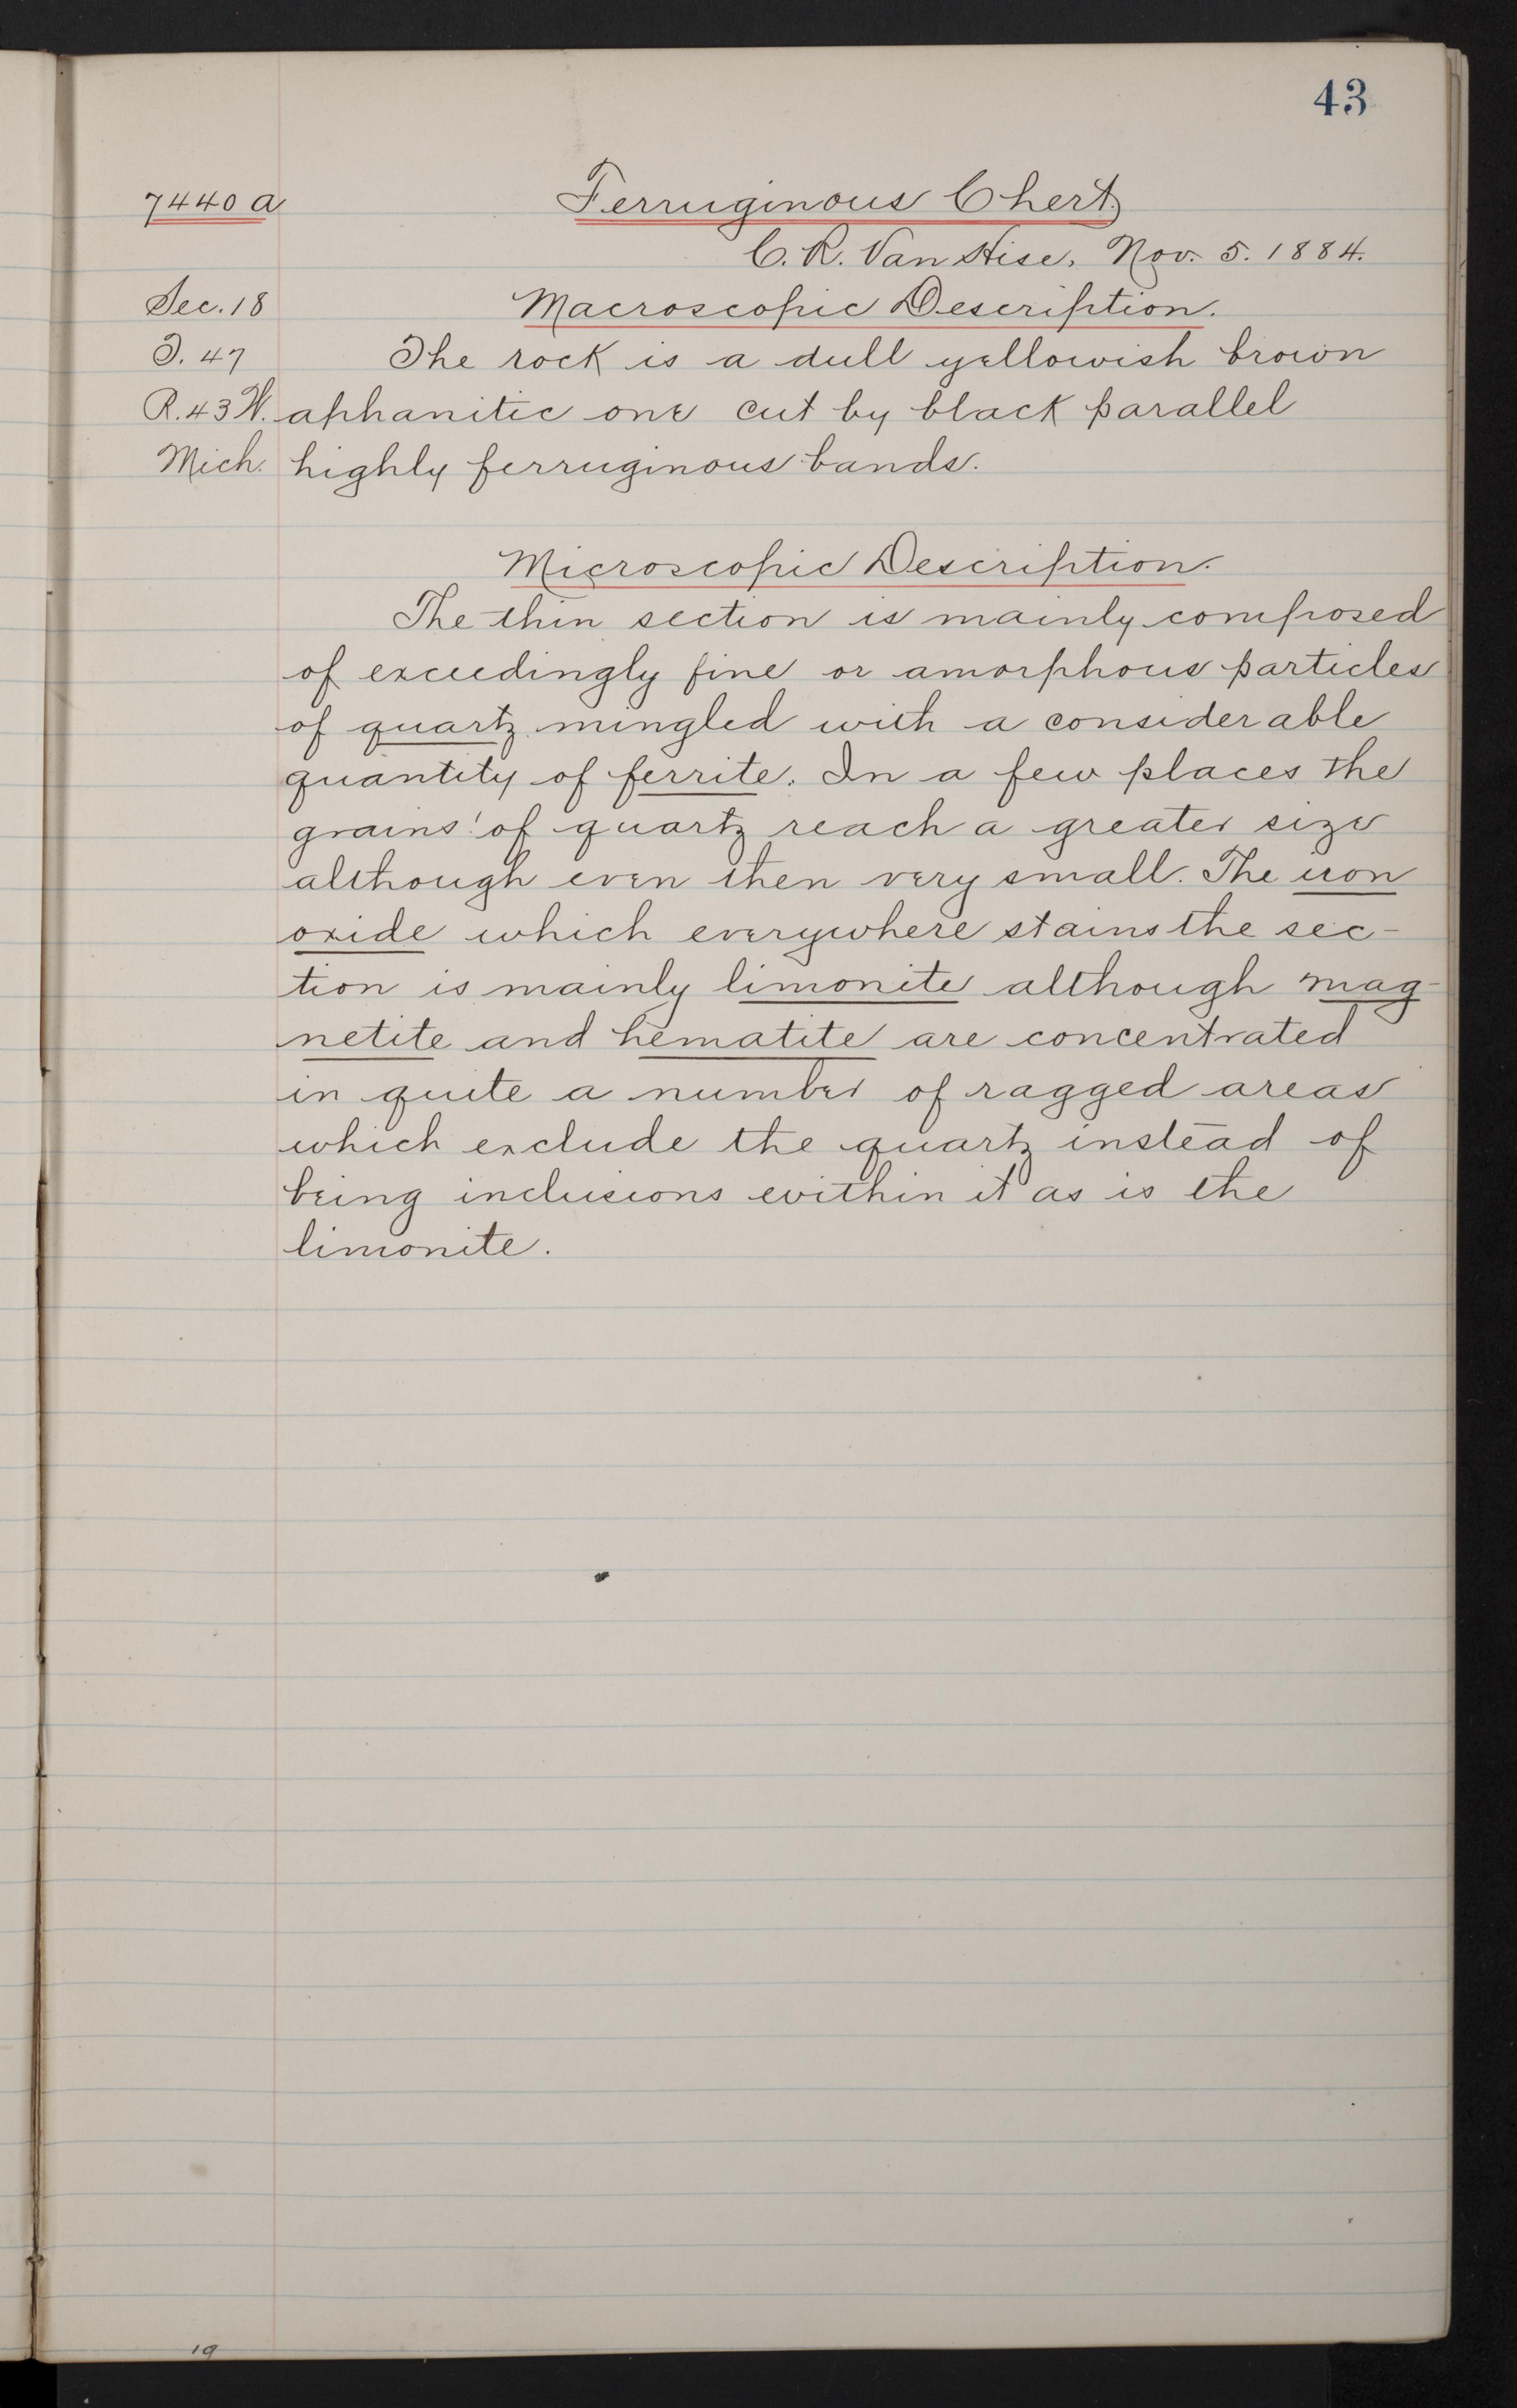 43
7440 a Ferruginous Chert.
C. R. Van Hise, Nov. 5. 1884.
Sec. 18 Macroscopic Description.
T. 47 The rock is a dull yellowish brown
R. 43 W. aphanitic one cut by black parallel
Mich. highly ferruginous bands.
Microscopic Description.
The thin section is mainly composed
of exceedingly fine or amorphous particles
of quartz mingled with a considerable
quantity of ferrite. In a few places the
grains of quartz reach a greater size
although even then very small. The iron
oxide which everywhere stains the sec-
tion is mainly limonite although mag-
netite and hematite are concentrated
in quite a number of ragged areas
which exclude the quartz instead of
being inclusions within it as is the
limonite.
19